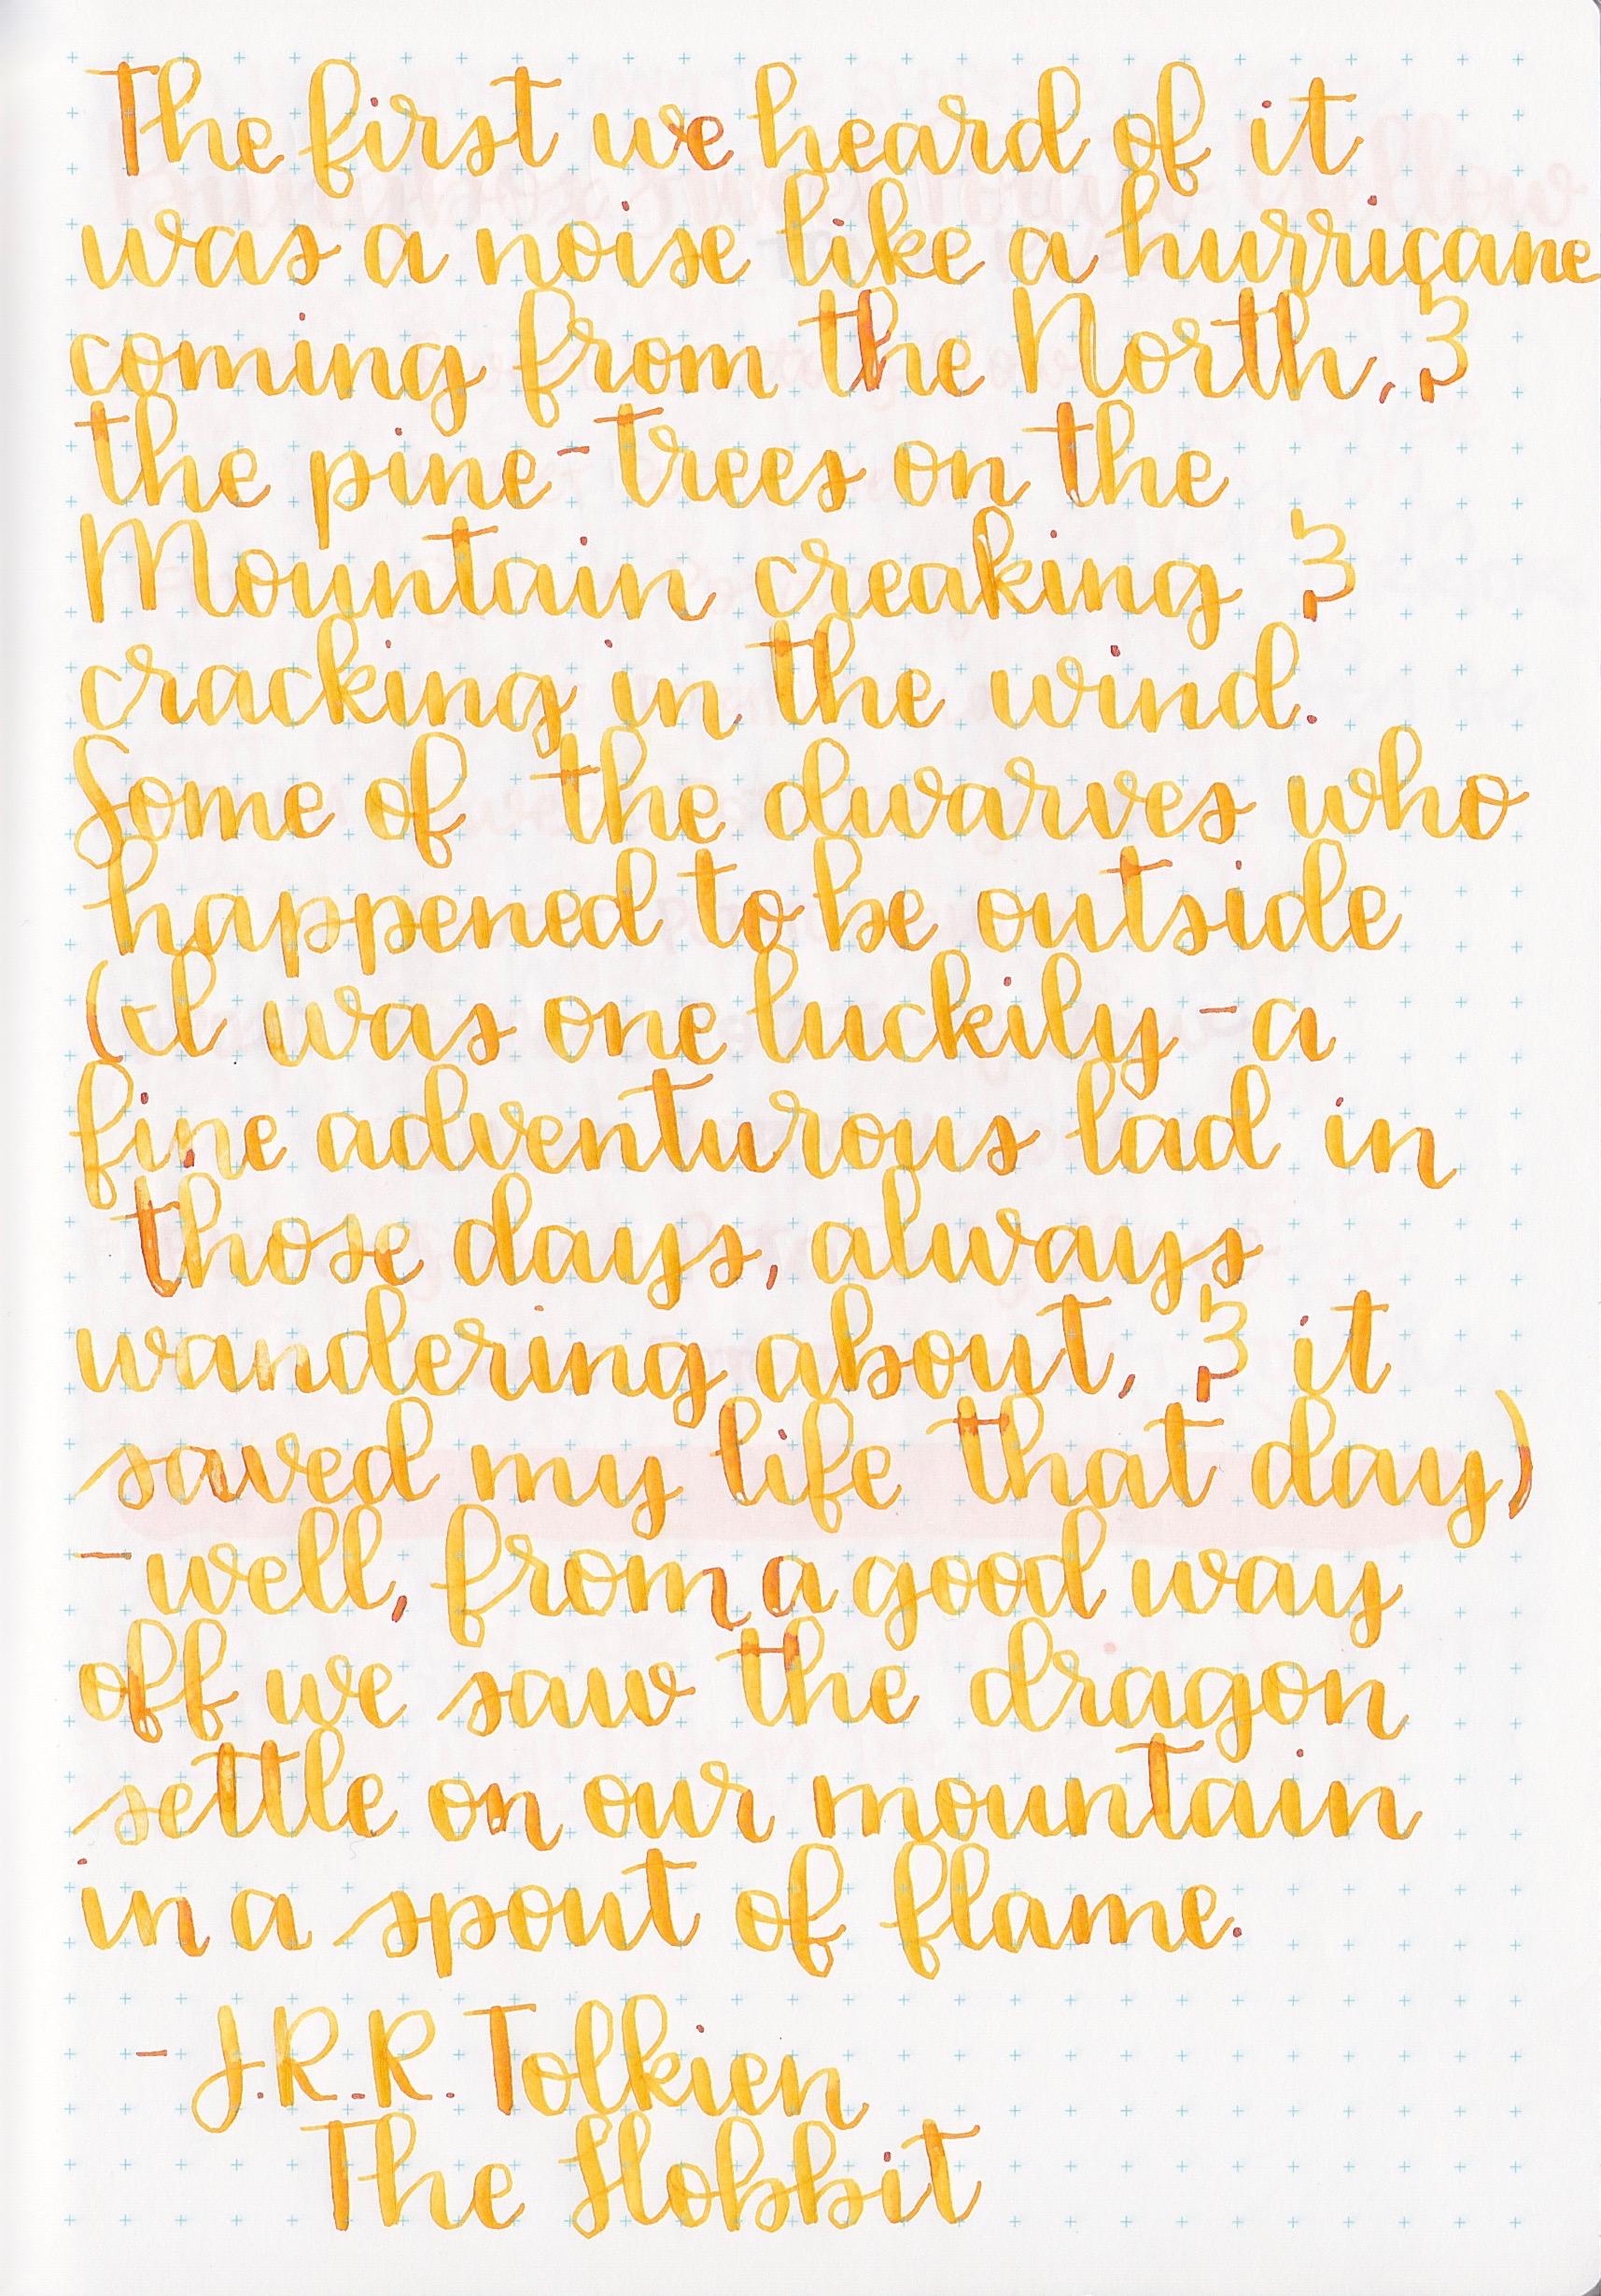 The first we heard of it
was a noise like a hurricane
coming from the North, &
the pine-trees on the
Mountain creaking &
cracking in the wind.
Some of the dwarves who
happened to be outside
(I was one luckily - a
fine adventurous lad in
those days, always
wandering about, & it
saved my life that day)
- well, from a good way
off we saw the dragon
settle on our mountain
in a spout of flame.
- J.R.R. Tolkien
The Hobbit